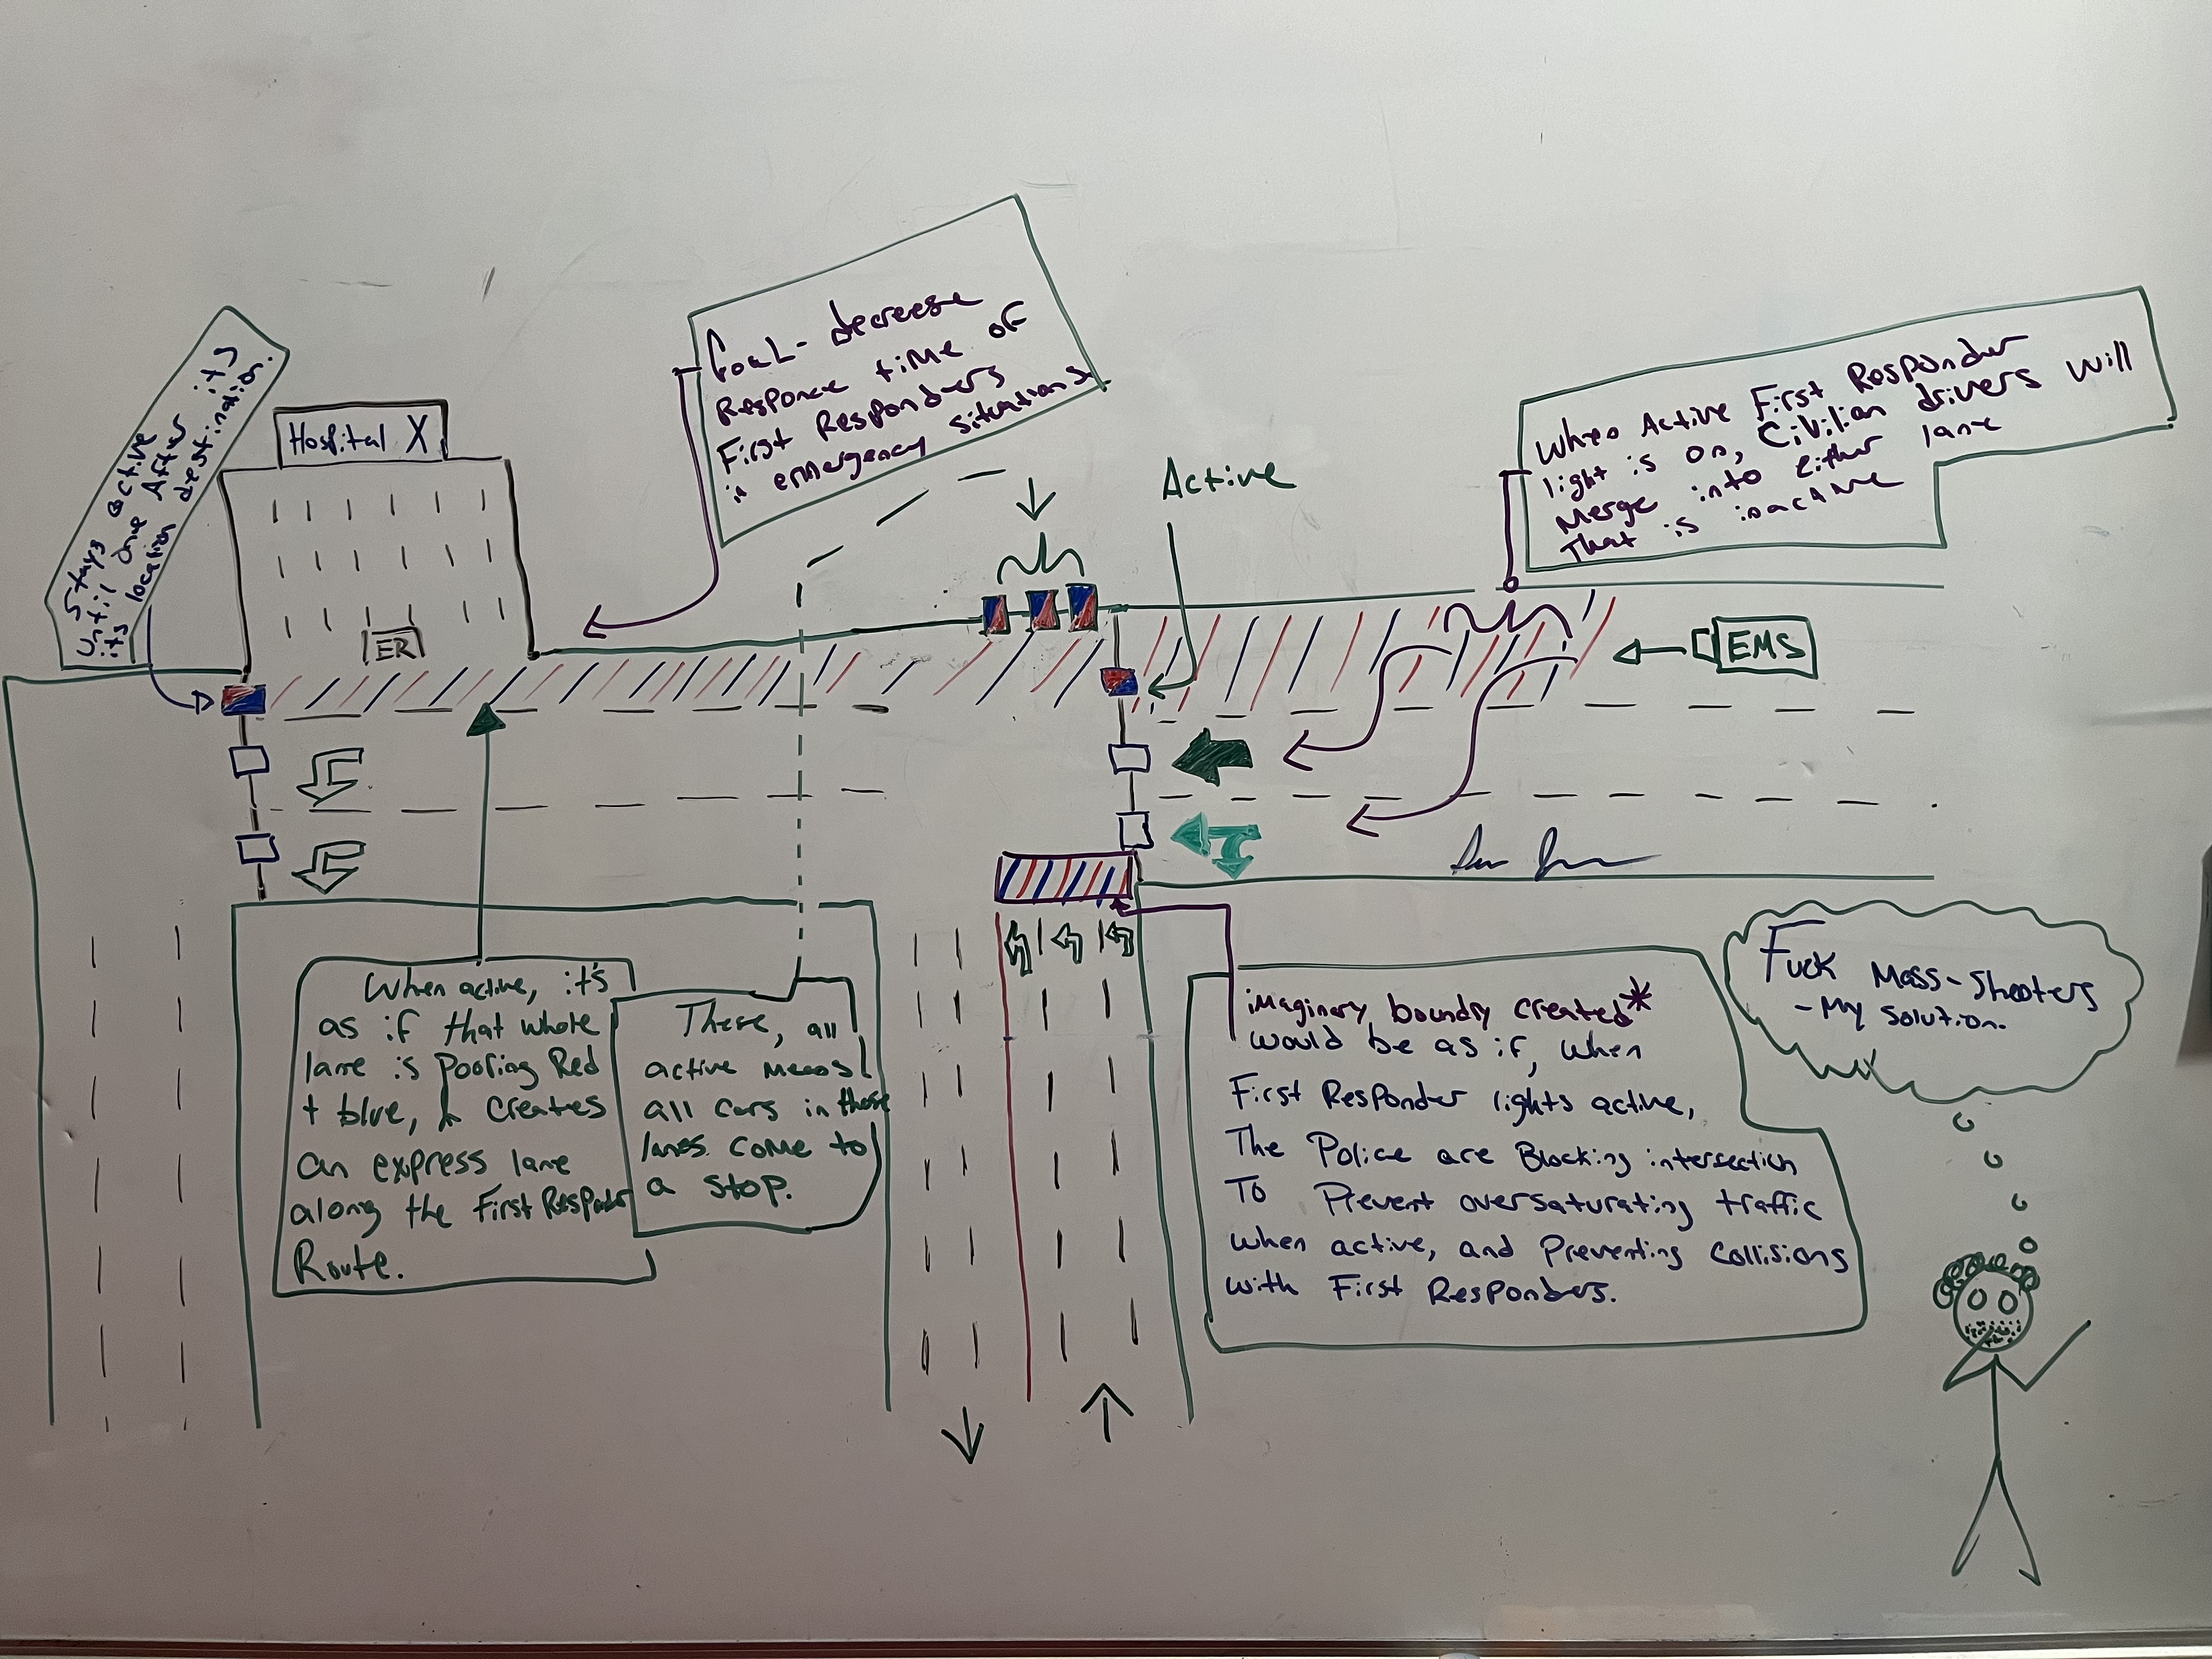 Stays active
until one After its
its location destination.
Hospital X
ER
Goal- decrease
Responce time of
First Responders
in emergency situations
Active
When Active First Responder
light is on, Civilian drivers will
Merge into either lane
That is inactive
EMS
When active, it's
as if that whole
lane is Pooling Red
+ blue, creates
an express lane
along the First Responder
Route.
These, all
active means
all cars in those
lanes come to
a stop.
imaginary boundry created*
would be as if, when
First Responder lights active,
The Police are Blocking intersection
To Prevent oversaturating traffic
when active, and Preventing Collisions
with First Responders.
Fuck Mass-Shooters
- My Solution.